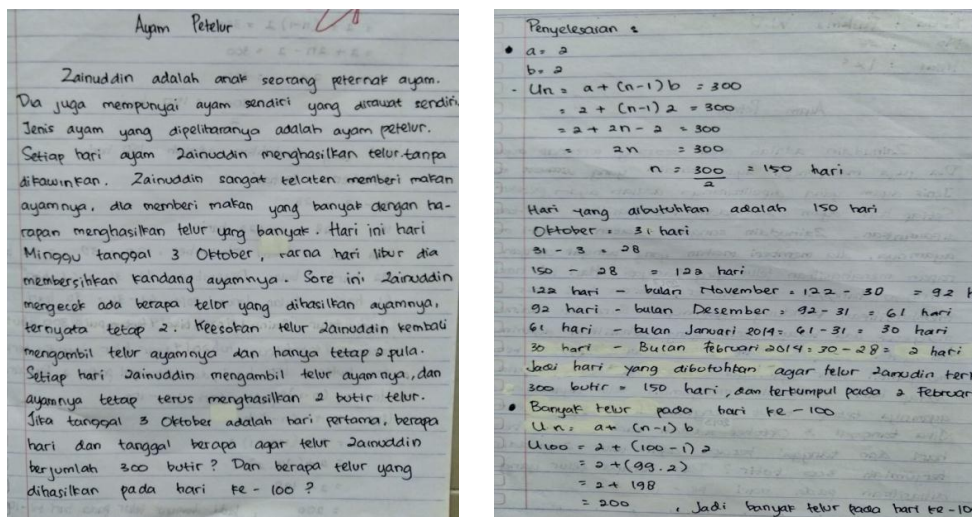 Ayam Petelur
Zainuddin adalah anak seorang peternak ayam.
Dia juga mempunyai ayam sendiri yang dirawat sendiri.
Jenis ayam yang dipeliharanya adalah ayam petelur.
Setiap hari ayam Zainuddin menghasilkan telur tanpa
dikawinkan. Zainuddin sangat telaten memberi makan
ayamnya, dia memberi makan yang banyak dengan ha-
rapan menghasilkan telur yang banyak. Hari ini hari
Minggu tanggal 3 Oktober, karna hari libur dia
membersihkan kandang ayamnya. Sore ini Zainuddin
mengecek ada berapa telor yang dihasilkan ayamnya,
ternyata tetap 2. Keesokan telur Zainuddin kembali
mengambil telur ayamnya dan hanya tetap 2 pula.
Setiap hari Zainuddin mengambil telur ayamnya, dan
ayamnya tetap terus menghasilkan 2 butir telur.
Jika tanggal 3 Oktober adalah hari pertama, berapa
hari dan tanggal berapa agar telur Zainuddin
berjumlah 300 butir? Dan berapa telur yang
dihasilkan pada hari ke-100?
Penyelesaian :
• a = 2
b = 2
- Un = a + (n-1) b = 300
= 2 + (n-1) 2 = 300
= 2 + 2n - 2 = 300
= 2n = 300
n = 300/2 = 150 hari
Hari yang dibutuhkan adalah 150 hari
Oktober = 31 hari
31 - 3 = 28
150 - 28 = 122 hari
122 hari - bulan November = 122 - 30 = 92 h
92 hari - bulan Desember = 92 - 31 = 61 hari
61 hari - bulan Januari 2014 = 61 - 31 = 30 hari
30 hari - Bulan februari 2014 = 30 - 28 = 2 hari
Jadi hari yang dibutuhkan agar telur Zainudin ter
300 butir = 150 hari, dan terkumpul pada 2 Februar
• Banyak telur pada hari ke-100
Un = a + (n-1) b
U100 = 2 + (100-1) 2
= 2 + (99.2)
= 2 + 198
= 200 , Jadi banyak telur pada hari ke-10